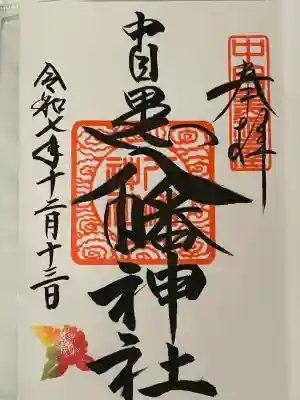 奉拝
中目黒八幡神社
令和七年十二月十三日